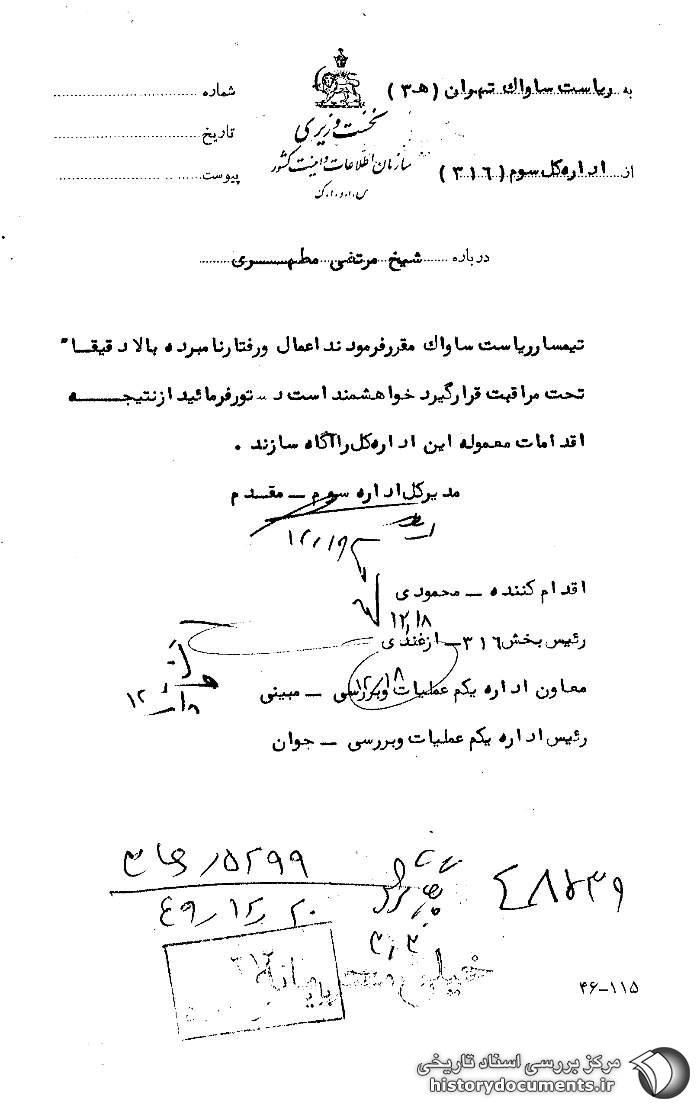 به ریاست ساواك تهران (هـ ۳)
شماره
نخست وزیری
تاریخ
سازمان اطلاعات و امنیت کشور
از اداره کل سوم (۳۱٦)
پیوست
س.ا.و.ا.ک
درباره شیخ مرتضی مطهــری
تیمسار ریاست ساواك مقرر فرمودند اعمال ورفتار نامبرده بالا دقیقا"
تحت مراقبت قرار گیرد خواهشمند است دستور فرمائید از نتیجـــه
اقدامات معموله این اداره کل را آگاه سازند .
مدیرکل اداره سوم ــ مقدم
۱۲/۱۹
اقدام کننده ــ محمودی
۱۲/۸
رئیس بخش ۳۱٦ ــ ازغندی
معاون اداره یکم عملیات وبررسی ــ مبینی
۱۲/۱۸
رئیس اداره یکم عملیات وبررسی ــ جوان
٤۹/۱۲/۲۰
خیلی محرمانه
۴۶-۱۱۵
مرکز بررسی اسناد تاریخی
historydocuments.ir